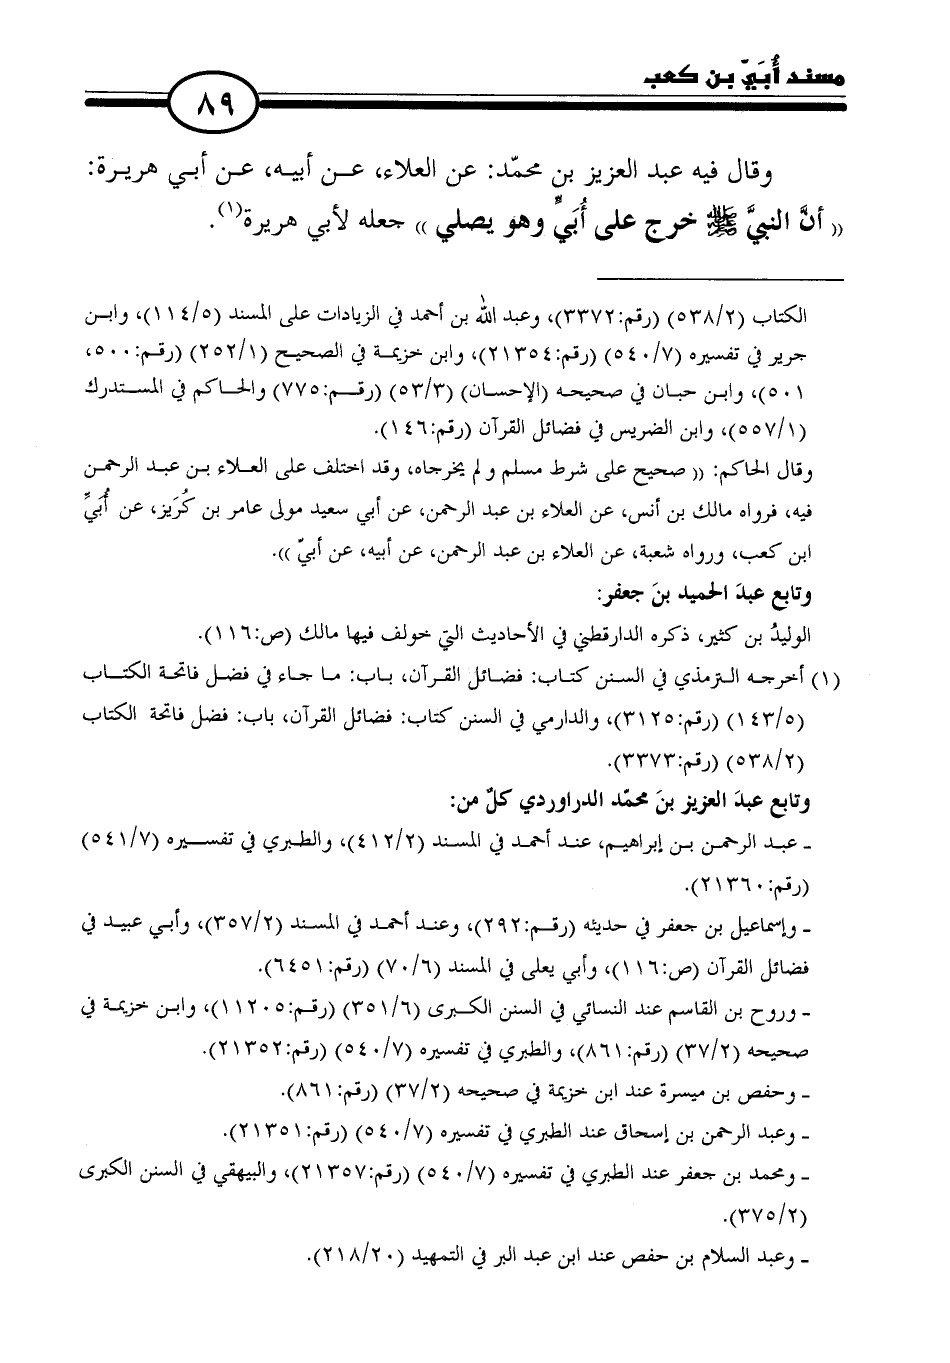 مسند أُبَيّ بن كعب
٨٩
وقال فيه عبد العزيز بن محمّد: عن العلاء، عـن أبيه، عـن أبـي هريـرة:
« أنَّ النبيَّ ﷺ خرج على أُبَيٍّ وهو يصلي » جعله لأبي هريرة(١).
الكتاب (٥٣٨/٢) (رقم:٣٣٧٢)، وعبد الله بن أحمد في الزيادات على المسند (١١٤/٥)، وابـن
جرير في تفسيره (٥٤٠/٧) (رقم:٢١٣٥٤)، وابن خزيمـة في الصحيح (٢٥٢/١) (رقـم:٥٠٠،
٥٠١)، وابـن حبـان في صحيحـه (الإحسـان) (٥٣/٣) (رقـم:٧٧٥) والحـاكم في المسـتدرك
(٥٥٧/١)، وابن الضريس في فضائل القرآن (رقم:١٤٦).
وقال الحاكم: « صحيح على شرط مسلم و لم يخرجاه، وقد اختلف على العـلاء بـن عبـد الرحمـن
فيه، فرواه مالك بن أنس، عن العلاء بن عبد الرحمن، عن أبي سعيد مولى عامر بن كُرَيز، عن أُبَيِّ
ابن كعب، ورواه شعبة، عن العلاء بن عبد الرحمن، عن أبيه، عن أبيّ ».
وتابع عبدَ الحميد بنَ جعفر:
الوليدُ بن كثير، ذكره الدارقطني في الأحاديث التي خولف فيها مالك (ص:١١٦).
(١) أخرجه الـترمذي في السـنن كتـاب: فضـائل القـرآن، بـاب: مـا جـاء في فضـل فاتحـة الكتـاب
(١٤٣/٥) (رقم:٣١٢٥)، والدارمي في السنن كتاب: فضائل القرآن، باب: فضل فاتحة الكتاب
(٥٣٨/٢) (رقم:٣٣٧٣).
وتابع عبدَ العزيز بنَ محمّد الدراوردي كلٌ من:
ـ عبـد الرحمـن بـن إبراهيـم، عنـد أحمـد في المسـند (٤١٢/٢)، والطـبري في تفسـيره (٥٤١/٧)
(رقم:٢١٣٦٠).
ـ وإسماعيل بن جعفر في حديثه (رقـم:٢٩٢)، وعنـد أحمـد في المسـند (٣٥٧/٢)، وأبـي عبيـد في
فضائل القرآن (ص:١١٦)، وأبي يعلى في المسند (٧٠/٦) (رقم:٦٤٥١).
ـ وروح بن القاسم عند النسائي في السنن الكـبرى (٣٥١/٦) (رقـم:١١٢٠٥)، وابـن خزيمـة في
صحيحه (٣٧/٢) (رقم:٨٦١)، والطبري في تفسيره (٥٤٠/٧) (رقم:٢١٣٥٢).
ـ وحفص بن ميسرة عند ابن خزيمة في صحيحه (٣٧/٢) (رقم:٨٦١).
ـ وعبد الرحمن بن إسحاق عند الطبري في تفسيره (٥٤٠/٧) (رقم:٢١٣٥١).
ـ ومحمد بن جعفر عند الطبري في تفسيره (٥٤٠/٧) (رقم:٢١٣٥٧)، والبيهقي في السنن الكبرى
(٣٧٥/٢).
ـ وعبد السلام بن حفص عند ابن عبد البر في التمهيد (٢١٨/٢٠).